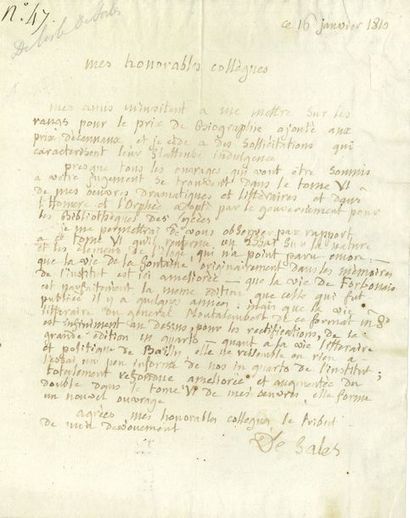 n° 47.
Delisle de Sales
ce 16 janvier 1810
mes honorables collegues
mes amis m'invitent a me mettre sur les
rangs pour le prix de Biographie ajouté aux
prix décennaux et je cède a des sollicitations qui
caracterisent leur flatteuse indulgence
presque tous les ouvrages qui vont être soumis
a votre jugement se trouvent dans le tome VI
de mes œuvres dramatiques et littéraires et dans
l'Homere et l'Orphée adopté par le gouvernement pour
les Bibliothèques des lycées
je me permettrai de vous observer par rapport
a ce tome VI qu'il renferme un Essai sur la nature
et les élemens de qui n'a point paru encor :
que la vie de la Fontaine originairement dans les mémoires
de l'institut est ici améliorée — que la vie de Forbonnais
est parfaitement la meme edition que celle qui fut
publiée il y a quelques années : mais que la vie
littéraire du général Montalembert de ce format in 8°
est infiniment au dessus, pour les rectifications, de
grande édition in quarto — quant a la vie littéraire
et politique de Bailly elle ne ressemble en rien a
l'essai un peu informe de nos in quarto de l'institut ;
totalement refondue améliorée et augmentée du
double dans le tome VI de mes œuvres elle forme
un nouvel ouvrage
agréez mes honorables collegues le tribut
de mon devouement
De Sales